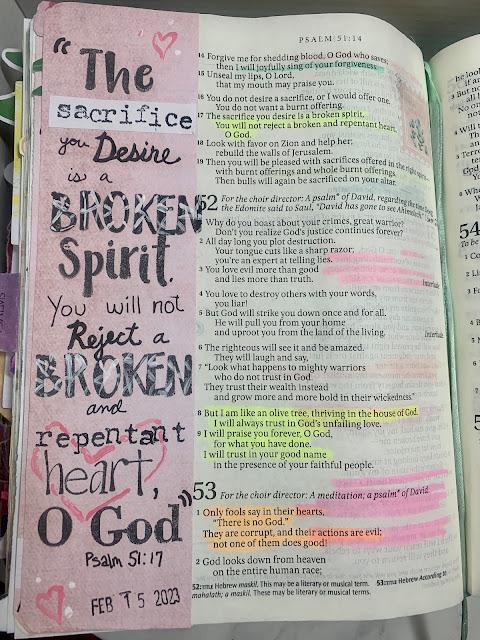 "The
sacrifice
you Desire
is a
BROKEN
Spirit.
You will not
Reject a
BROKEN
and
repentant
heart,
O God"
Psalm 51:17
FEB 15 2023
PSALM 51:14
14 Forgive me for shedding blood, O God who saves;
then I will joyfully sing of your forgiveness.
15 Unseal my lips, O Lord,
that my mouth may praise you.
16 You do not desire a sacrifice, or I would offer one.
You do not want a burnt offering.
17 The sacrifice you desire is a broken spirit.
You will not reject a broken and repentant heart,
O God.
18 Look with favor on Zion and help her;
rebuild the walls of Jerusalem.
19 Then you will be pleased with sacrifices offered in the right spirit—
with burnt offerings and whole burnt offerings.
Then bulls will again be sacrificed on your altar.
52 For the choir director: A psalm* of David, regarding the time Doeg
the Edomite said to Saul, "David has gone to see Ahimelech."
1 Why do you boast about your crimes, great warrior?
Don't you realize God's justice continues forever?
2 All day long you plot destruction.
Your tongue cuts like a sharp razor;
you're an expert at telling lies.
3 You love evil more than good
and lies more than truth.
Interlude
4 You love to destroy others with your words,
you liar!
5 But God will strike you down once and for all.
He will pull you from your home
and uproot you from the land of the living.
Interlude
6 The righteous will see it and be amazed.
They will laugh and say,
7 "Look what happens to mighty warriors
who do not trust in God.
They trust their wealth instead
and grow more and more bold in their wickedness."
8 But I am like an olive tree, thriving in the house of God.
I will always trust in God's unfailing love.
9 I will praise you forever, O God,
for what you have done.
I will trust in your good name
in the presence of your faithful people.
53 For the choir director: A meditation; a psalm* of David.
1 Only fools say in their hearts,
"There is no God."
They are corrupt, and their actions are evil;
not one of them does good!
2 God looks down from heaven
on the entire human race;
52:TITLE Hebrew maskil. This may be a literary or musical term. 53:TITLE Hebrew According to
mahalath; a maskil. These may be literary or musical terms.
54